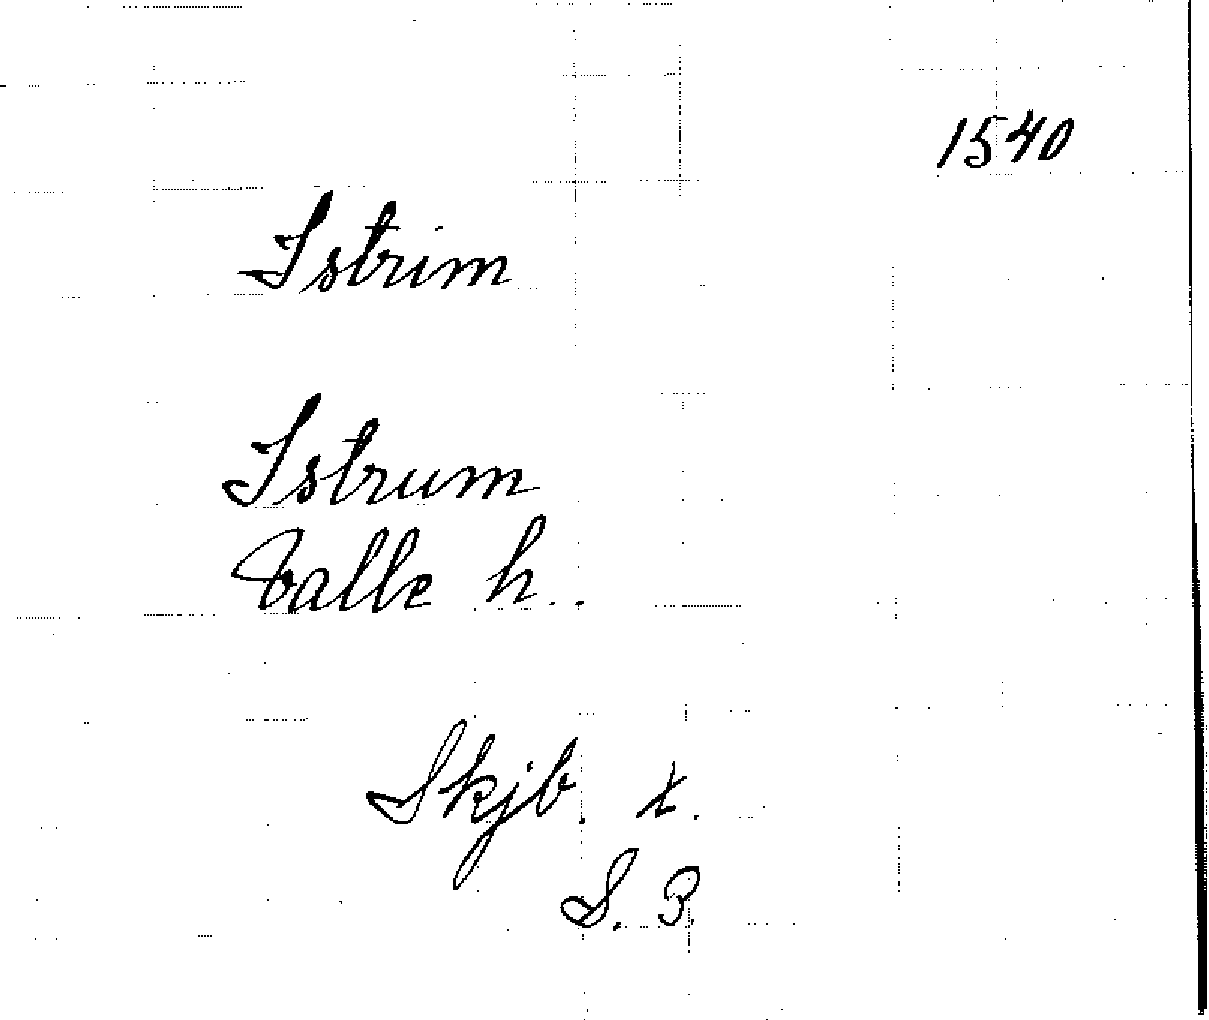 1540
Istrim
Istrum
Valle h.
Skjb. t.
S. 3.